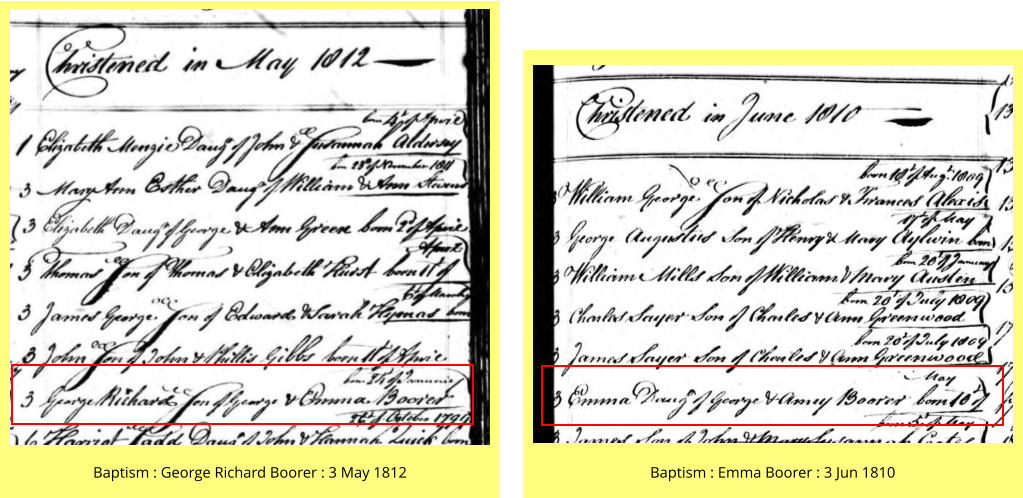 Christened in May 1812
born 4th of April
1 Elizabeth Menzie Daug of John & Susannah Aldersey
born 28th of November 1811
3 Mary Ann Esther Daug of William & Ann
3 Elizabeth Daug of George & Ann Green born 2d of April
April
3 Thomas Son of Thomas & Elizabeth Hurst born 11th of
6th of March
3 James George Son of Edward & Sarah Hymas born
3 John Son of John & Phillis Gibbs born 11th of April
born 24th of January
3 George Richard Son of George & Emma Boorer
26th of October 1799
6 Harriot Ladd Daug of John & Hannah Quick born
Baptism : George Richard Boorer : 3 May 1812
Christened in June 1810
born 18th of Augt 1809
3 William George Son of Nicholas & Frances Alexis
17th of May
3 George Augustus Son of Henry & Mary Aylwin born
born 20th of January
3 William Mills Son of William & Mary Austen
born 20th of July 1809
3 Charles Sayer Son of Charles & Ann Greenwood
born 20th of July 1809
3 James Sayer Son of Charles & Ann Greenwood
May
3 Emma Daug of George & Amey Boorer born 10th of
born 5th of May
James Son of John & Mary Susannah
Baptism : Emma Boorer : 3 Jun 1810